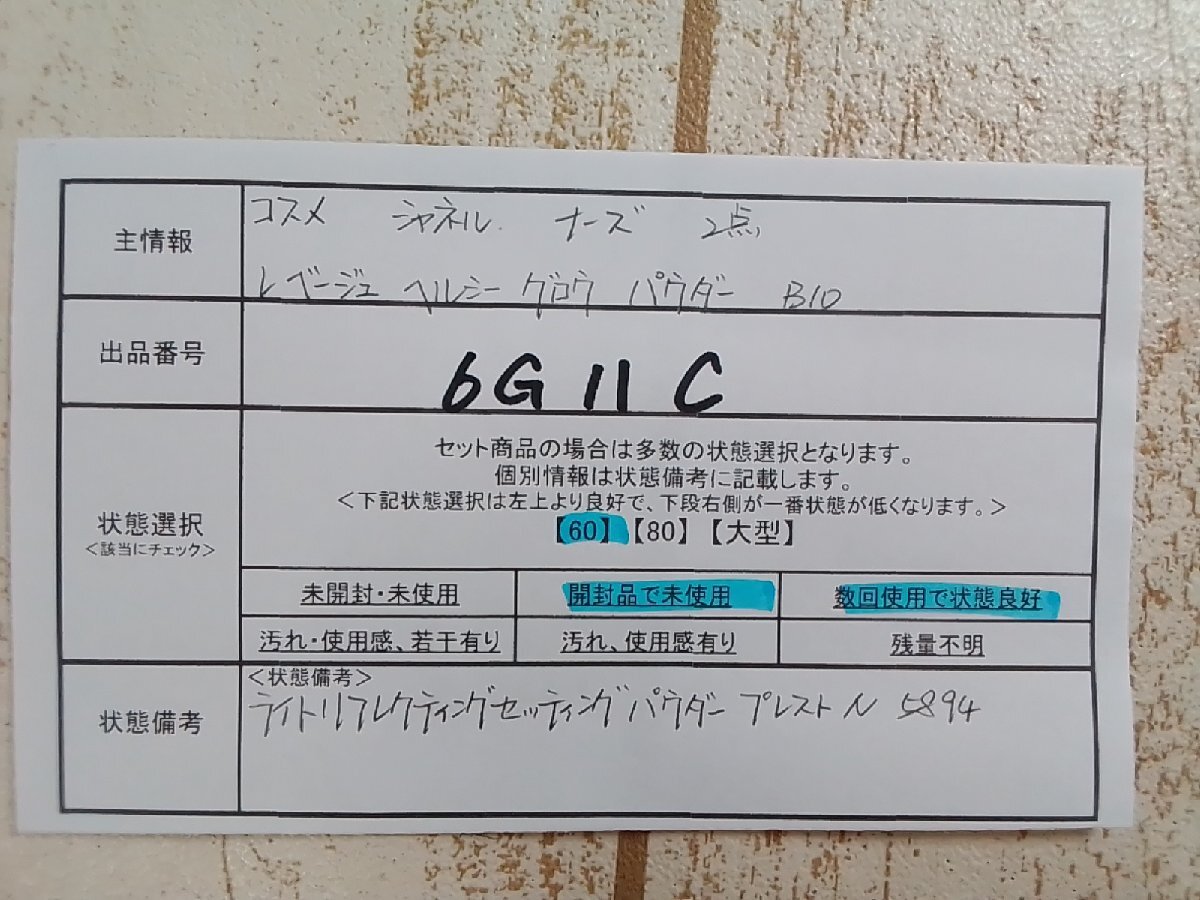 主情報
コスメ シャネル ナーズ 2点
レベージュ ヘルシー グロウ パウダー B10
出品番号
6G11C
状態選択
<該当にチェック>
セット商品の場合は多数の状態選択となります。
個別情報は状態備考に記載します。
<下記状態選択は左上より良好で、下段右側が一番状態が低くなります。>
【60】【80】【大型】
未開封・未使用 開封品で未使用 数回使用で状態良好
汚れ・使用感、若干有り 汚れ、使用感有り 残量不明
状態備考
<状態備考>
ライトリフレクティングセッティングパウダー プレスト N 5894